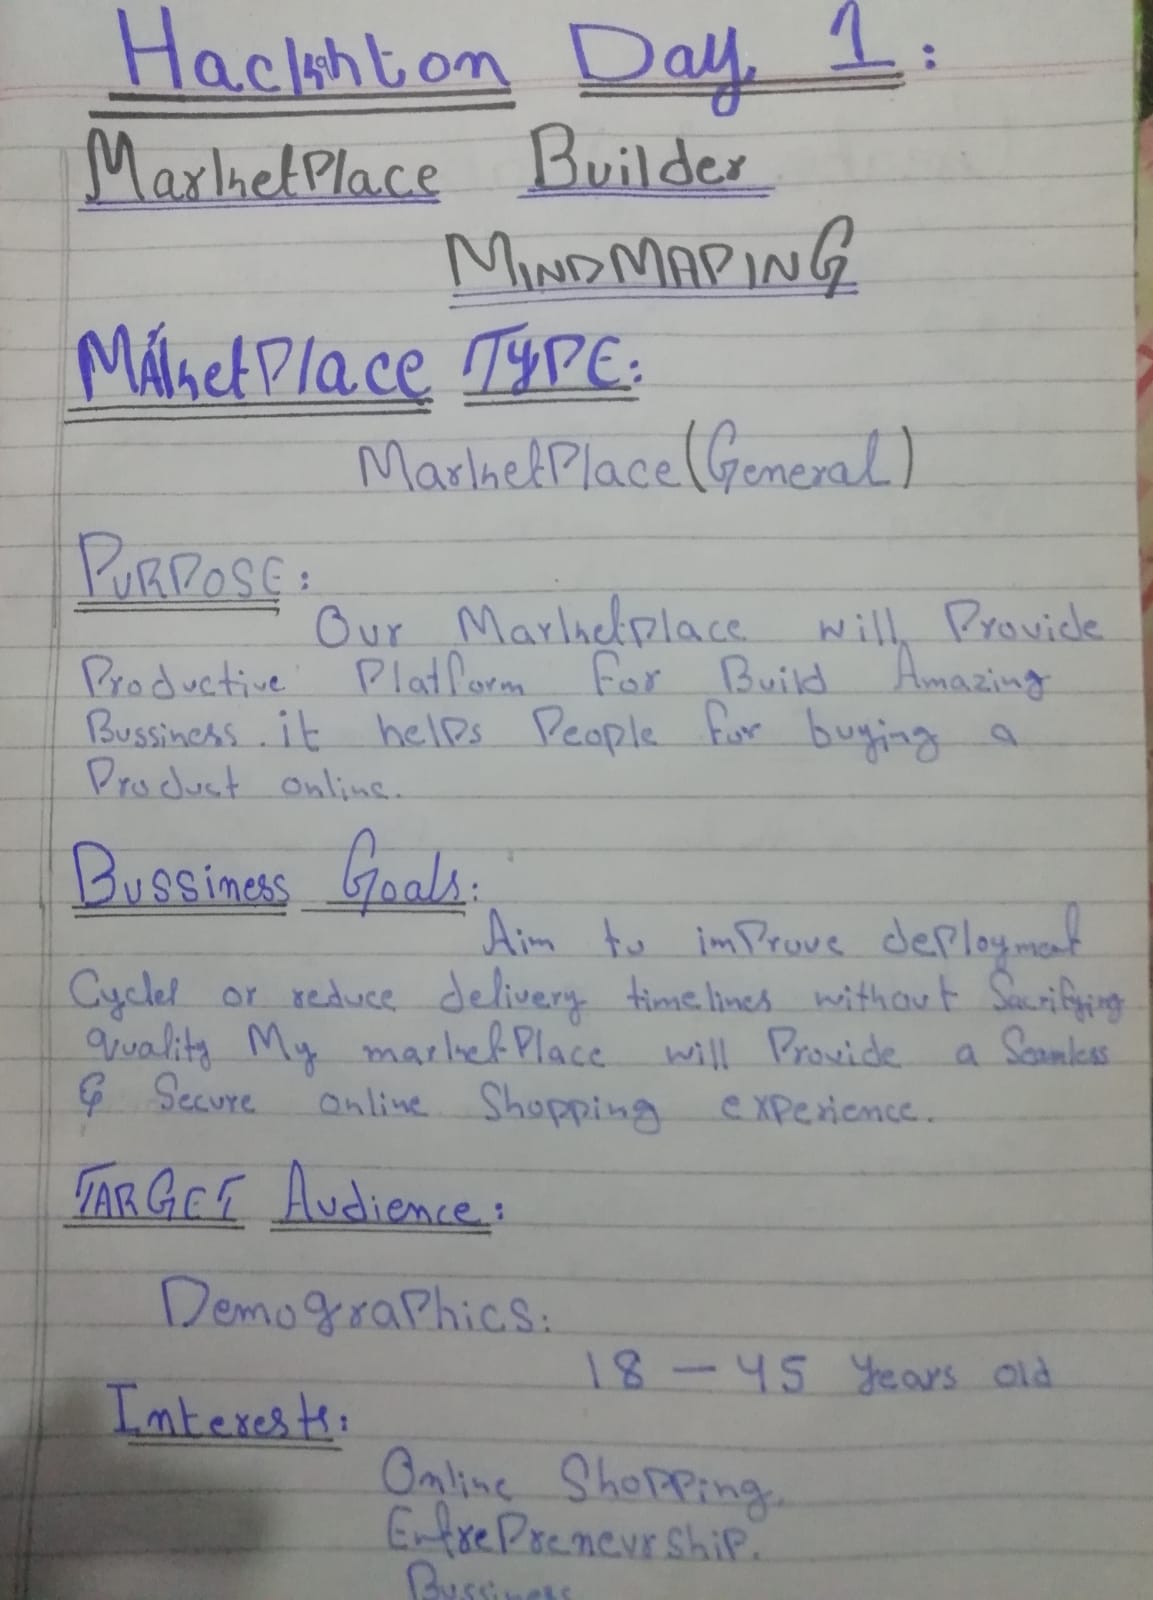 Hackahton Day 1:
MarketPlace Builder
MINDMAPING
MarketPlace TYPE:
MarketPlace (General)
PURPOSE:
Our Marketplace will Provide
Productive Platform for Build Amazing
Bussiness. it helps People for buying a
Product online.
Bussiness Goals:
Aim to imProve deployment
Cycles or reduce delivery timelines without Sacrifying
quality My marketPlace will Provide a Seamless
& Secure online Shopping experience.
TARGET Audience:
DemograPhics:
18 - 45 Years old
Interests:
Online Shopping.
EntrePreneurShip.
Bussiness